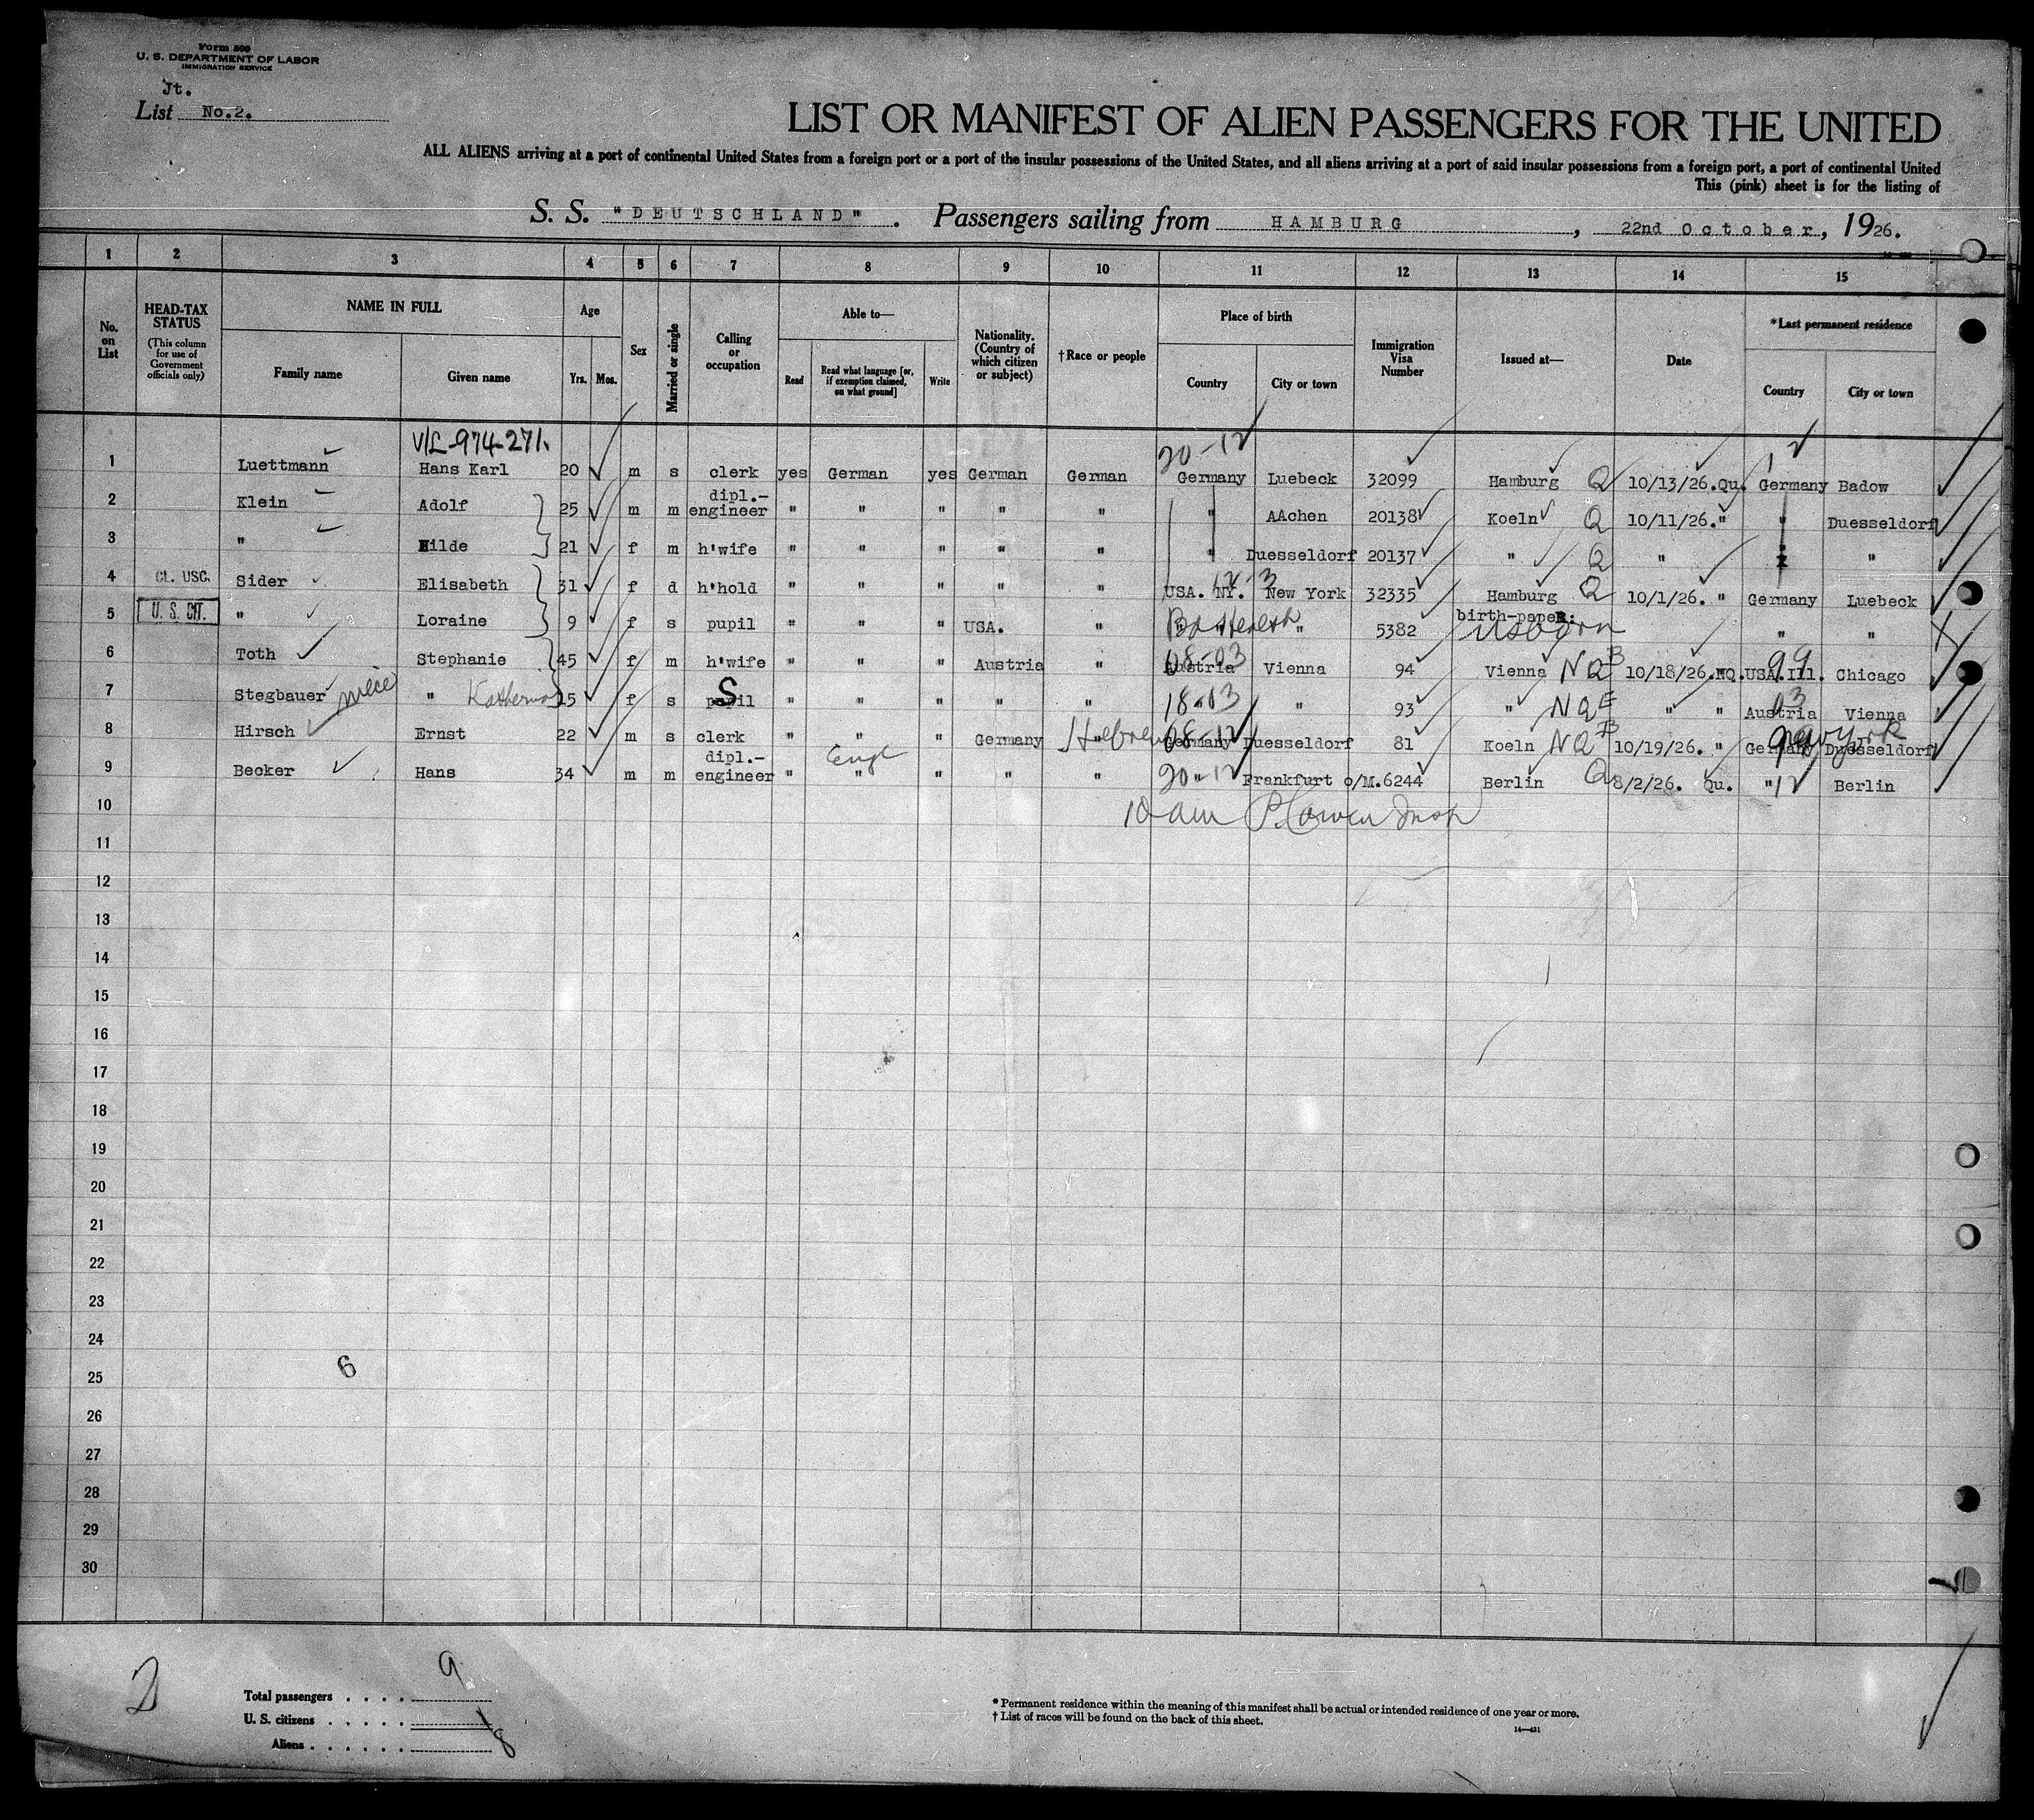 Form 500
U. S. DEPARTMENT OF LABOR
IMMIGRATION SERVICE
Jt.
List No.2.
LIST OR MANIFEST OF ALIEN PASSENGERS FOR THE UNITED
ALL ALIENS arriving at a port of continental United States from a foreign port or a port of the insular possessions of the United States, and all aliens arriving at a port of said insular possessions from a foreign port, a port of continental United
This (pink) sheet is for the listing of
S. S. "DEUTSCHLAND". Passengers sailing from HAMBURG, 22nd October, 1926.
1 2 3 4 5 6 7 8 9 10 11 12 13 14 15
No. on List
HEAD-TAX STATUS
(This column for use of Government officials only)
NAME IN FULL
Family name
Given name
Age
Yrs.
Mos.
Sex
Married or single
Calling or occupation
Able to—
Read
Read what language [or, if exemption claimed, on what ground]
Write
Nationality. (Country of which citizen or subject)
†Race or people
Place of birth
Country
City or town
Immigration Visa Number
Issued at—
Date
*Last permanent residence
Country
City or town
V/L-974-271. 20-12
1 Luettmann Hans Karl 20 m s clerk yes German yes German German Germany Luebeck 32099 Hamburg Q 10/13/26. Qu. Germany Badow
2 Klein Adolf 25 m m dipl.-engineer " " " " " " AAchen 20138 Koeln Q 10/11/26. " " Duesseldorf
3 " Hilde 21 f m h'wife " " " " " " Duesseldorf 20137 " Q " "
4 CL. USC. Sider Elisabeth 31 f d h'hold " " " " " USA. NY. New York 32335 Hamburg Q 10/1/26. " Germany Luebeck
5 U. S. CIT. " Loraine 9 f s pupil " " " USA. " " " 5382 birth-paper: " "
6 Toth Stephanie 45 f m h'wife " " " Austria " Austria 08-03 Vienna 94 Vienna NQ B 10/18/26. NQ. USA. Ill. 99 Chicago
7 Stegbauer niece " 15 f s pupil S " " " " " 18-03 " 93 " NQ E " " Austria 03 Vienna
8 Hirsch Ernst 22 m s clerk " " " Germany " Hebrew Germany Duesseldorf 81 Koeln NQ B 10/19/26. " Germany Duesseldorf New York
9 Becker Hans 34 m m dipl.-engineer " " Engl " " " 20-12 Frankfurt o/M. 6244 Berlin Q 8/2/26. Qu. " 12 Berlin
10 10 am
11
12
13
14
15
16
17
18
19
20
21
22
23
24
6
25
26
27
28
29
30
2
Total passengers . . . . 9
U. S. citizens . . . . . 1
Aliens . . . . . . 8
* Permanent residence within the meaning of this manifest shall be actual or intended residence of one year or more.
† List of races will be found on the back of this sheet.
14—431